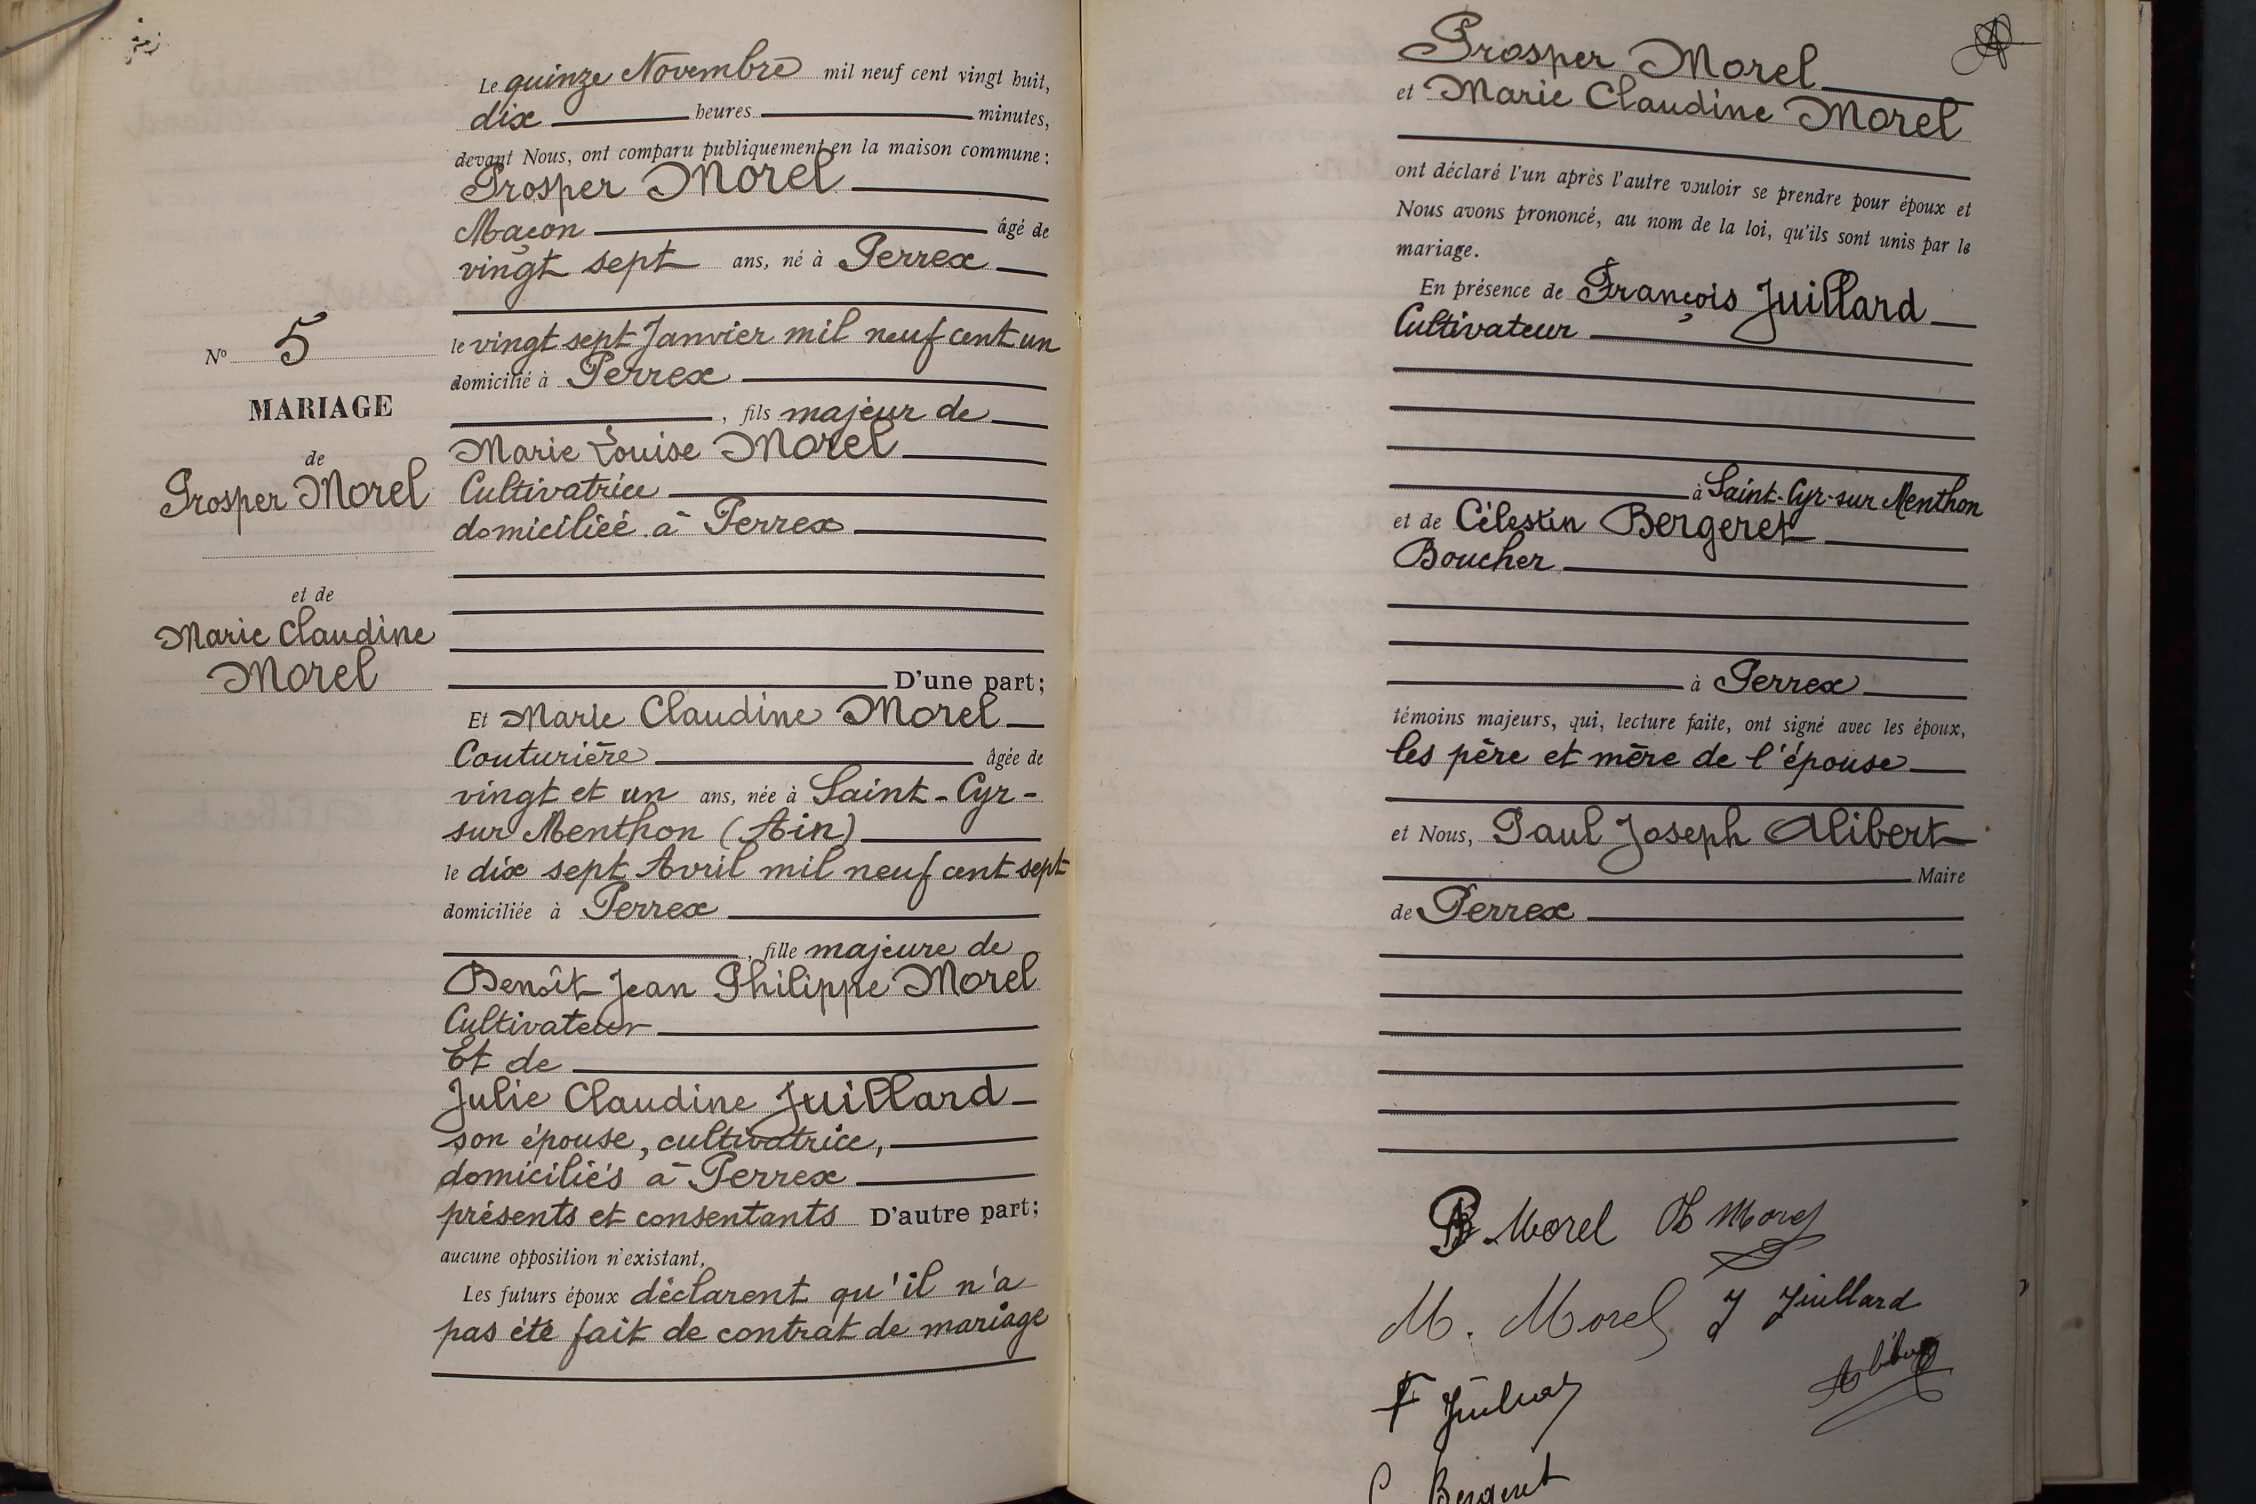 Le quinze Novembre mil neuf cent vingt huit,
dix heures minutes,
devant Nous, ont comparu publiquement en la maison commune :
Prosper Morel
Maçon âgé de
vingt sept ans, né à Perrex
le vingt sept Janvier mil neuf cent un
domicilié à Perrex
, fils majeur de
Marie Louise Morel
Cultivatrice
domiciliée à Perrex
D'une part ;
Et Marie Claudine Morel
Couturière âgée de
vingt et un ans, née à Saint-Cyr-
sur Menthon (Ain)
le dix sept Avril mil neuf cent sept
domiciliée à Perrex
, fille majeure de
Benoît Jean Philippe Morel
Cultivateur
Et de
Julie Claudine Juillard
son épouse, cultivatrice,
domiciliés à Perrex
présents et consentants D'autre part ;
aucune opposition n'existant,
Les futurs époux déclarent qu'il n'a
pas été fait de contrat de mariage
N° 5
MARIAGE
de
Prosper Morel
et de
Marie Claudine
Morel
Prosper Morel
et Marie Claudine Morel
ont déclaré l'un après l'autre vouloir se prendre pour époux et
Nous avons prononcé, au nom de la loi, qu'ils sont unis par le
mariage.
En présence de François Juillard
Cultivateur
à Saint-Cyr-sur Menthon
et de Célestin Bergeret
Boucher
à Perrex
témoins majeurs, qui, lecture faite, ont signé avec les époux,
les père et mère de l'épouse
et Nous, Paul Joseph Alibert
Maire
de Perrex
Morel Morel
M. Morel J Juillard
F Juillard
Alibert
C Bergeret